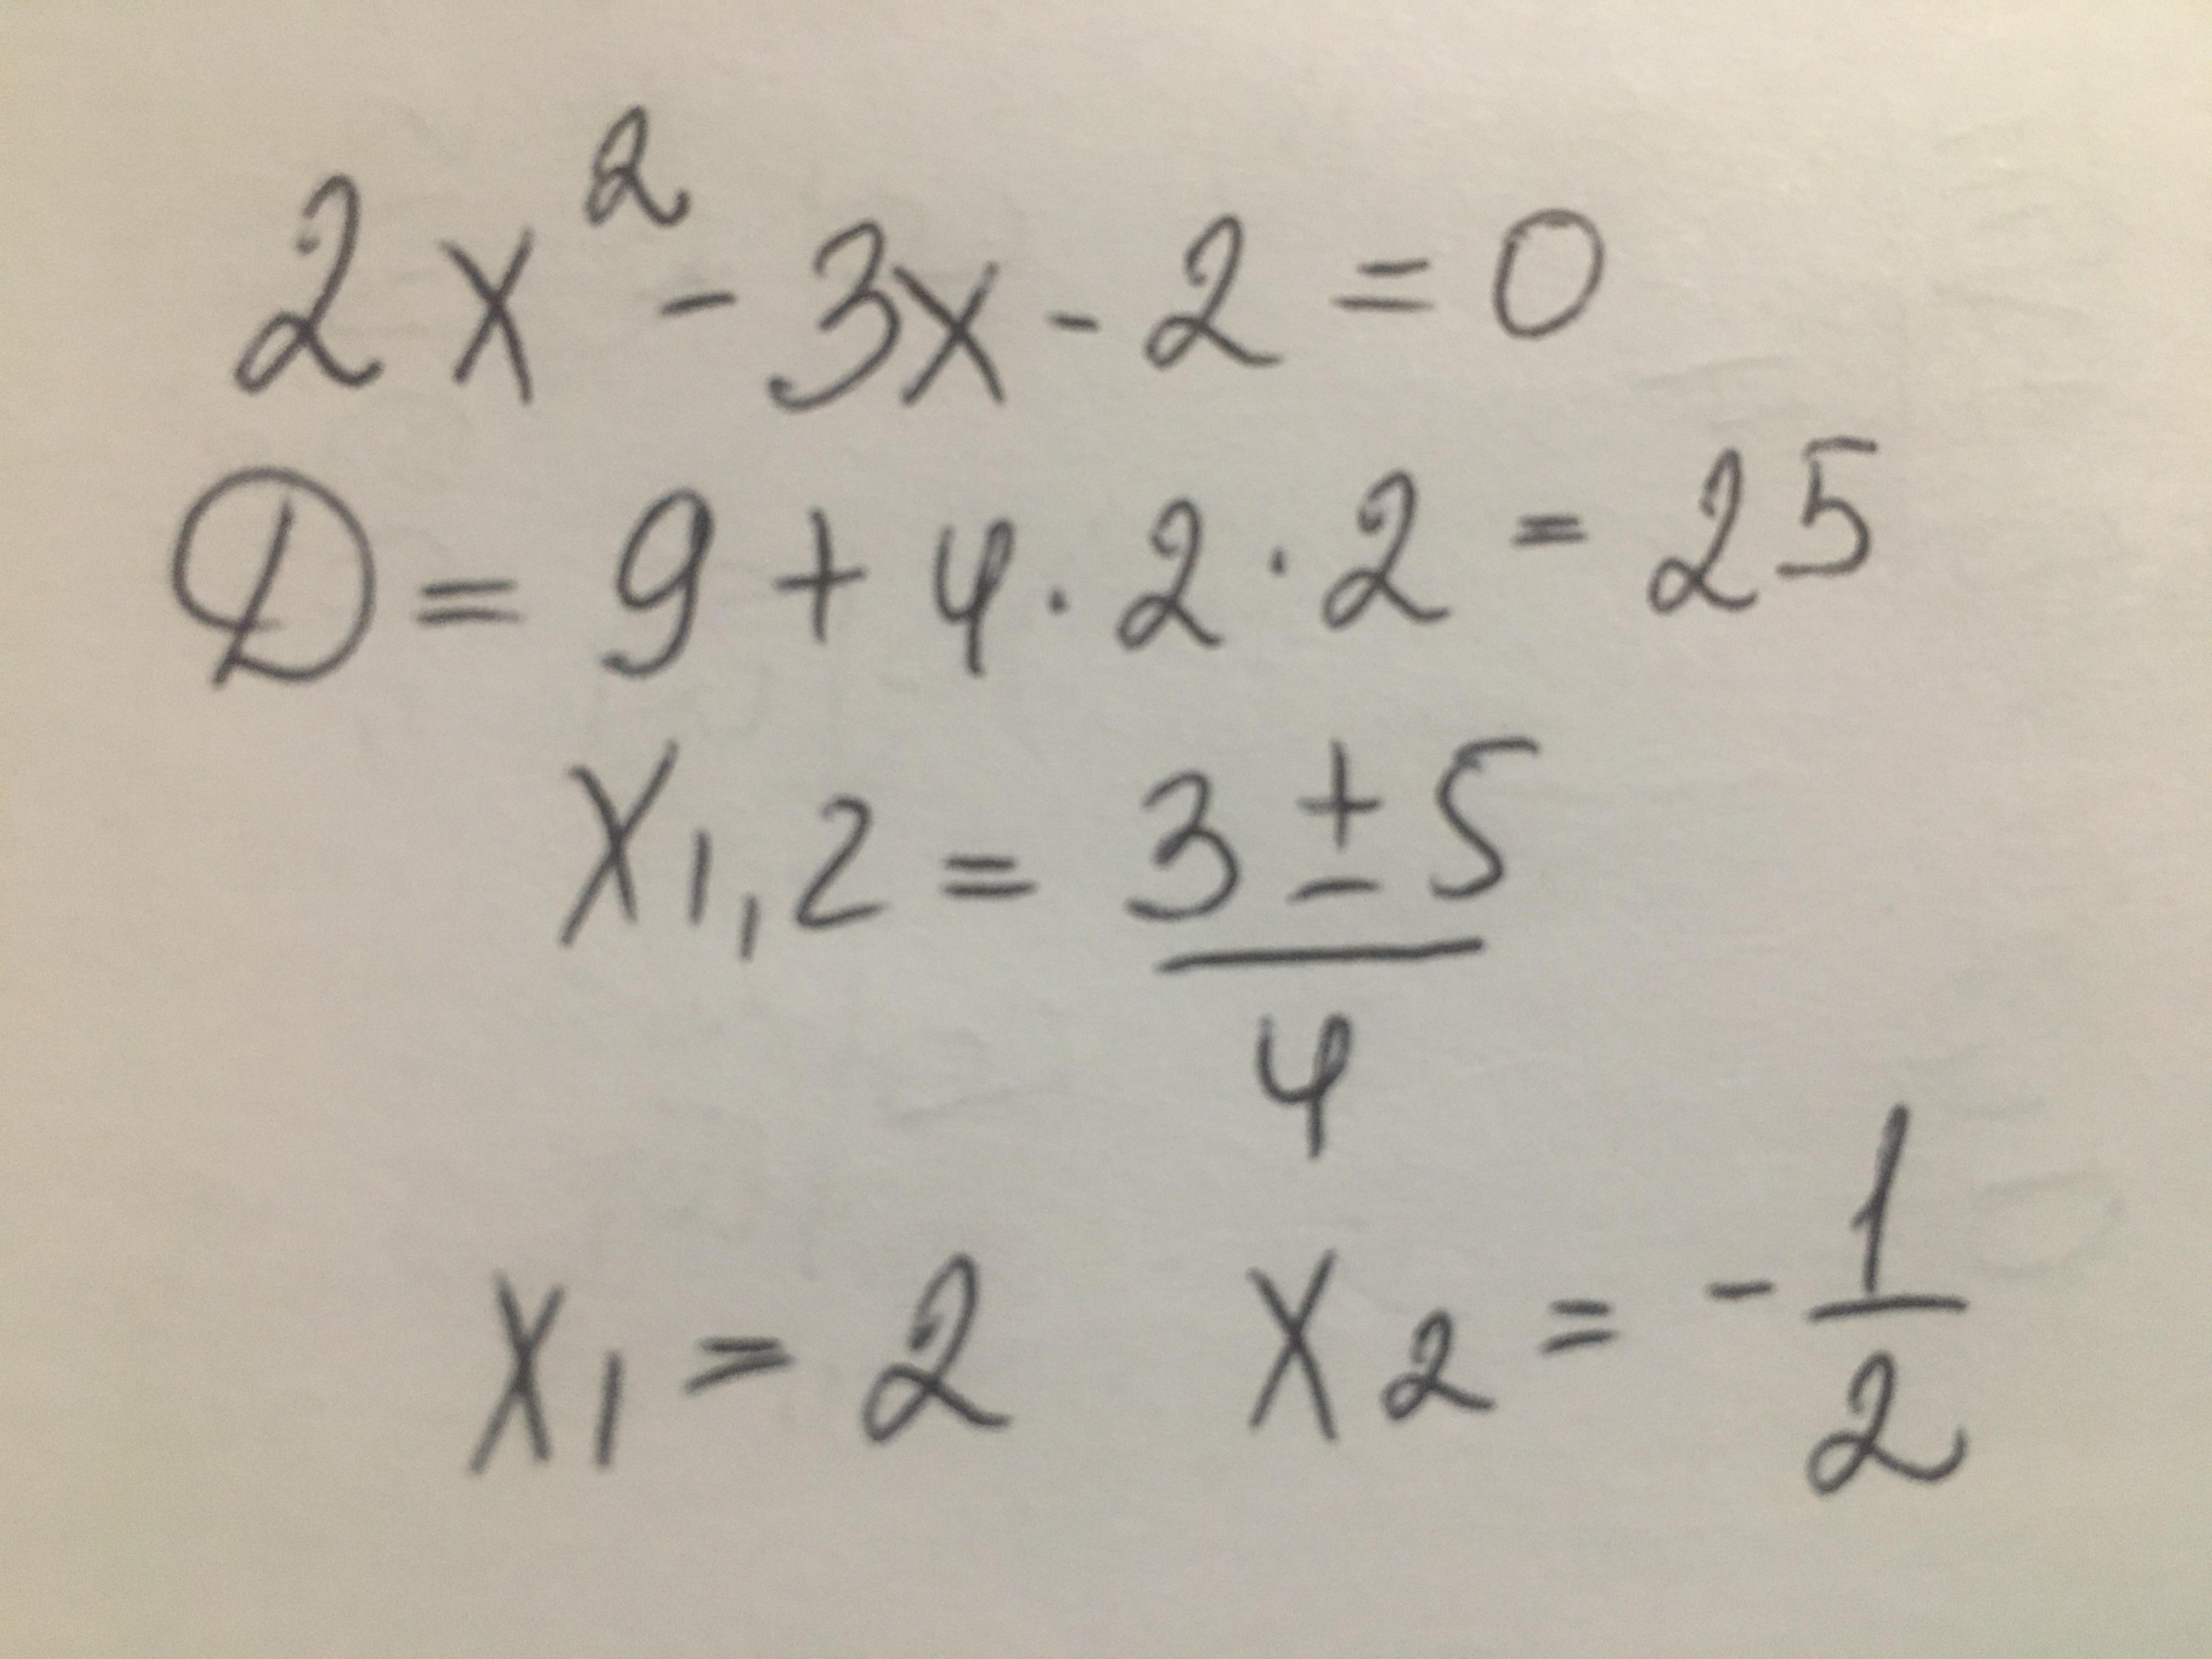 2x² - 3x - 2 = 0
D = 9 + 4 · 2 · 2 = 25
x1,2 = (3 ± 5)/4
x1 = 2 x2 = -1/2